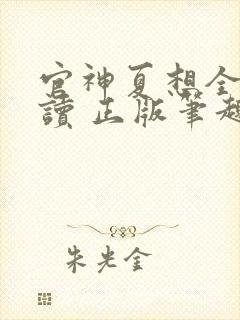 官神夏想全
讀 正版筆趣
朱光金